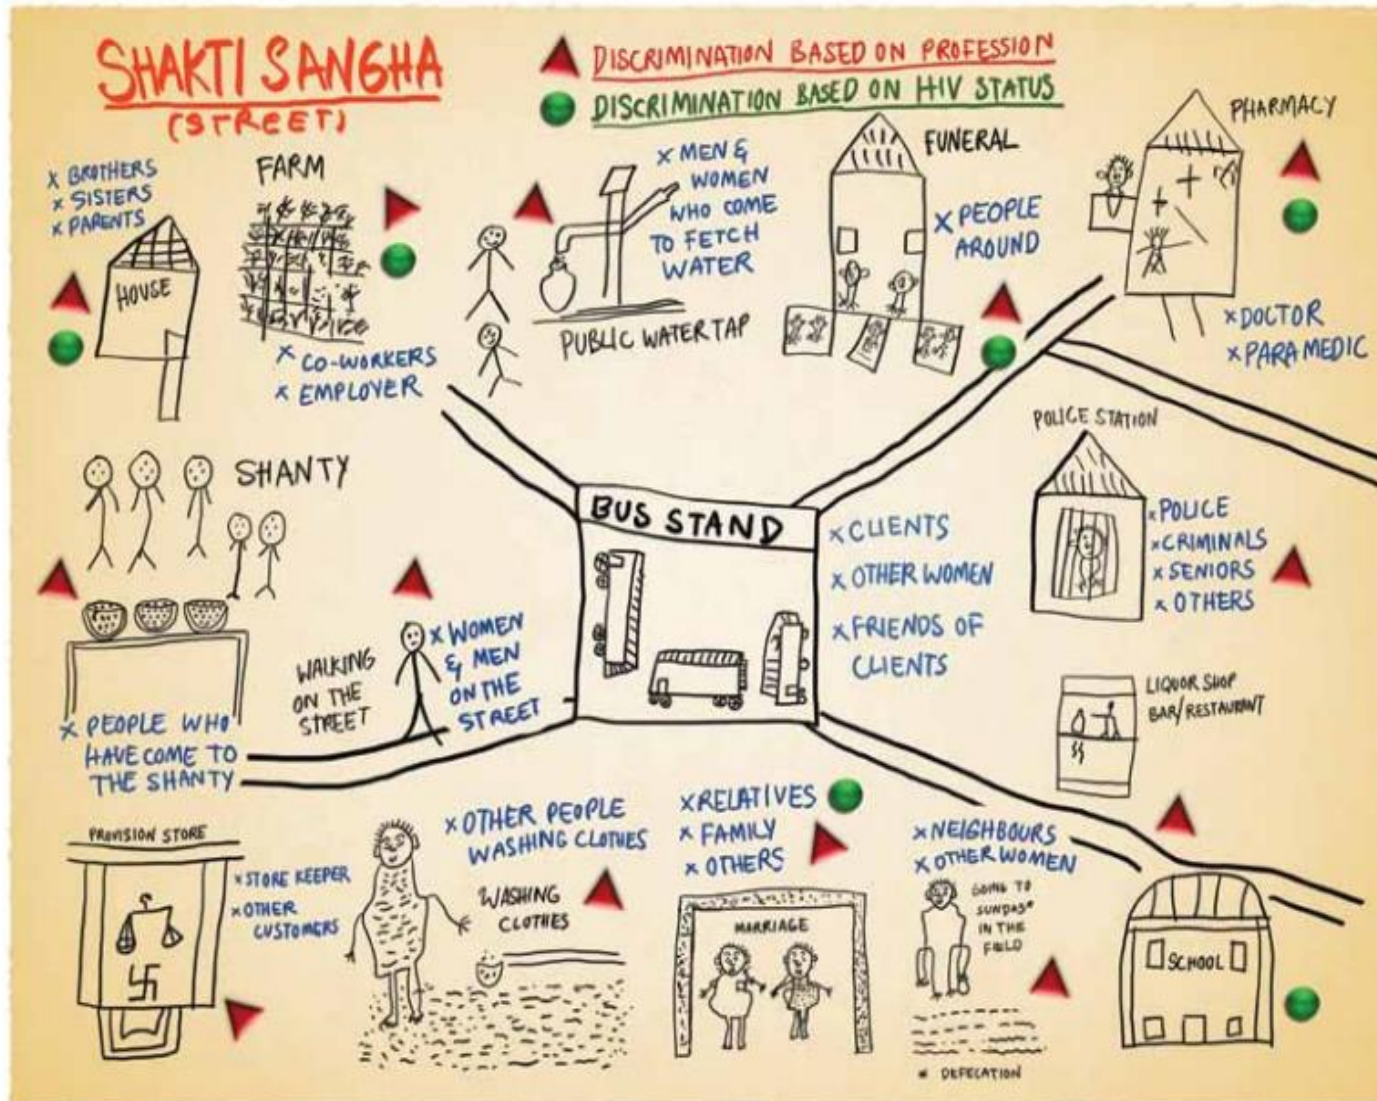 SHAKTI SANGHA
(STREET)
DISCRIMINATION BASED ON PROFESSION
DISCRIMINATION BASED ON HIV STATUS
X BROTHERS
X SISTERS
X PARENTS
HOUSE
FARM
X CO-WORKERS
X EMPLOYER
X MEN &
WOMEN
WHO COME
TO FETCH
WATER
PUBLIC WATER TAP
FUNERAL
X PEOPLE
AROUND
PHARMACY
X DOCTOR
X PARAMEDIC
SHANTY
X PEOPLE WHO
HAVE COME TO
THE SHANTY
WALKING
ON THE
STREET
X WOMEN
& MEN
ON THE
STREET
BUS STAND
X CLIENTS
X OTHER WOMEN
X FRIENDS OF
CLIENTS
POLICE STATION
X POLICE
X CRIMINALS
X SENIORS
X OTHERS
LIQUOR SHOP
BAR/RESTAURANT
PROVISION STORE
X STORE KEEPER
X OTHER
CUSTOMERS
X OTHER PEOPLE
WASHING CLOTHES
WASHING
CLOTHES
X RELATIVES
X FAMILY
X OTHERS
MARRIAGE
X NEIGHBOURS
X OTHER WOMEN
GOING TO
SUNDAS*
IN THE
FIELD
* DEFECATION
SCHOOL